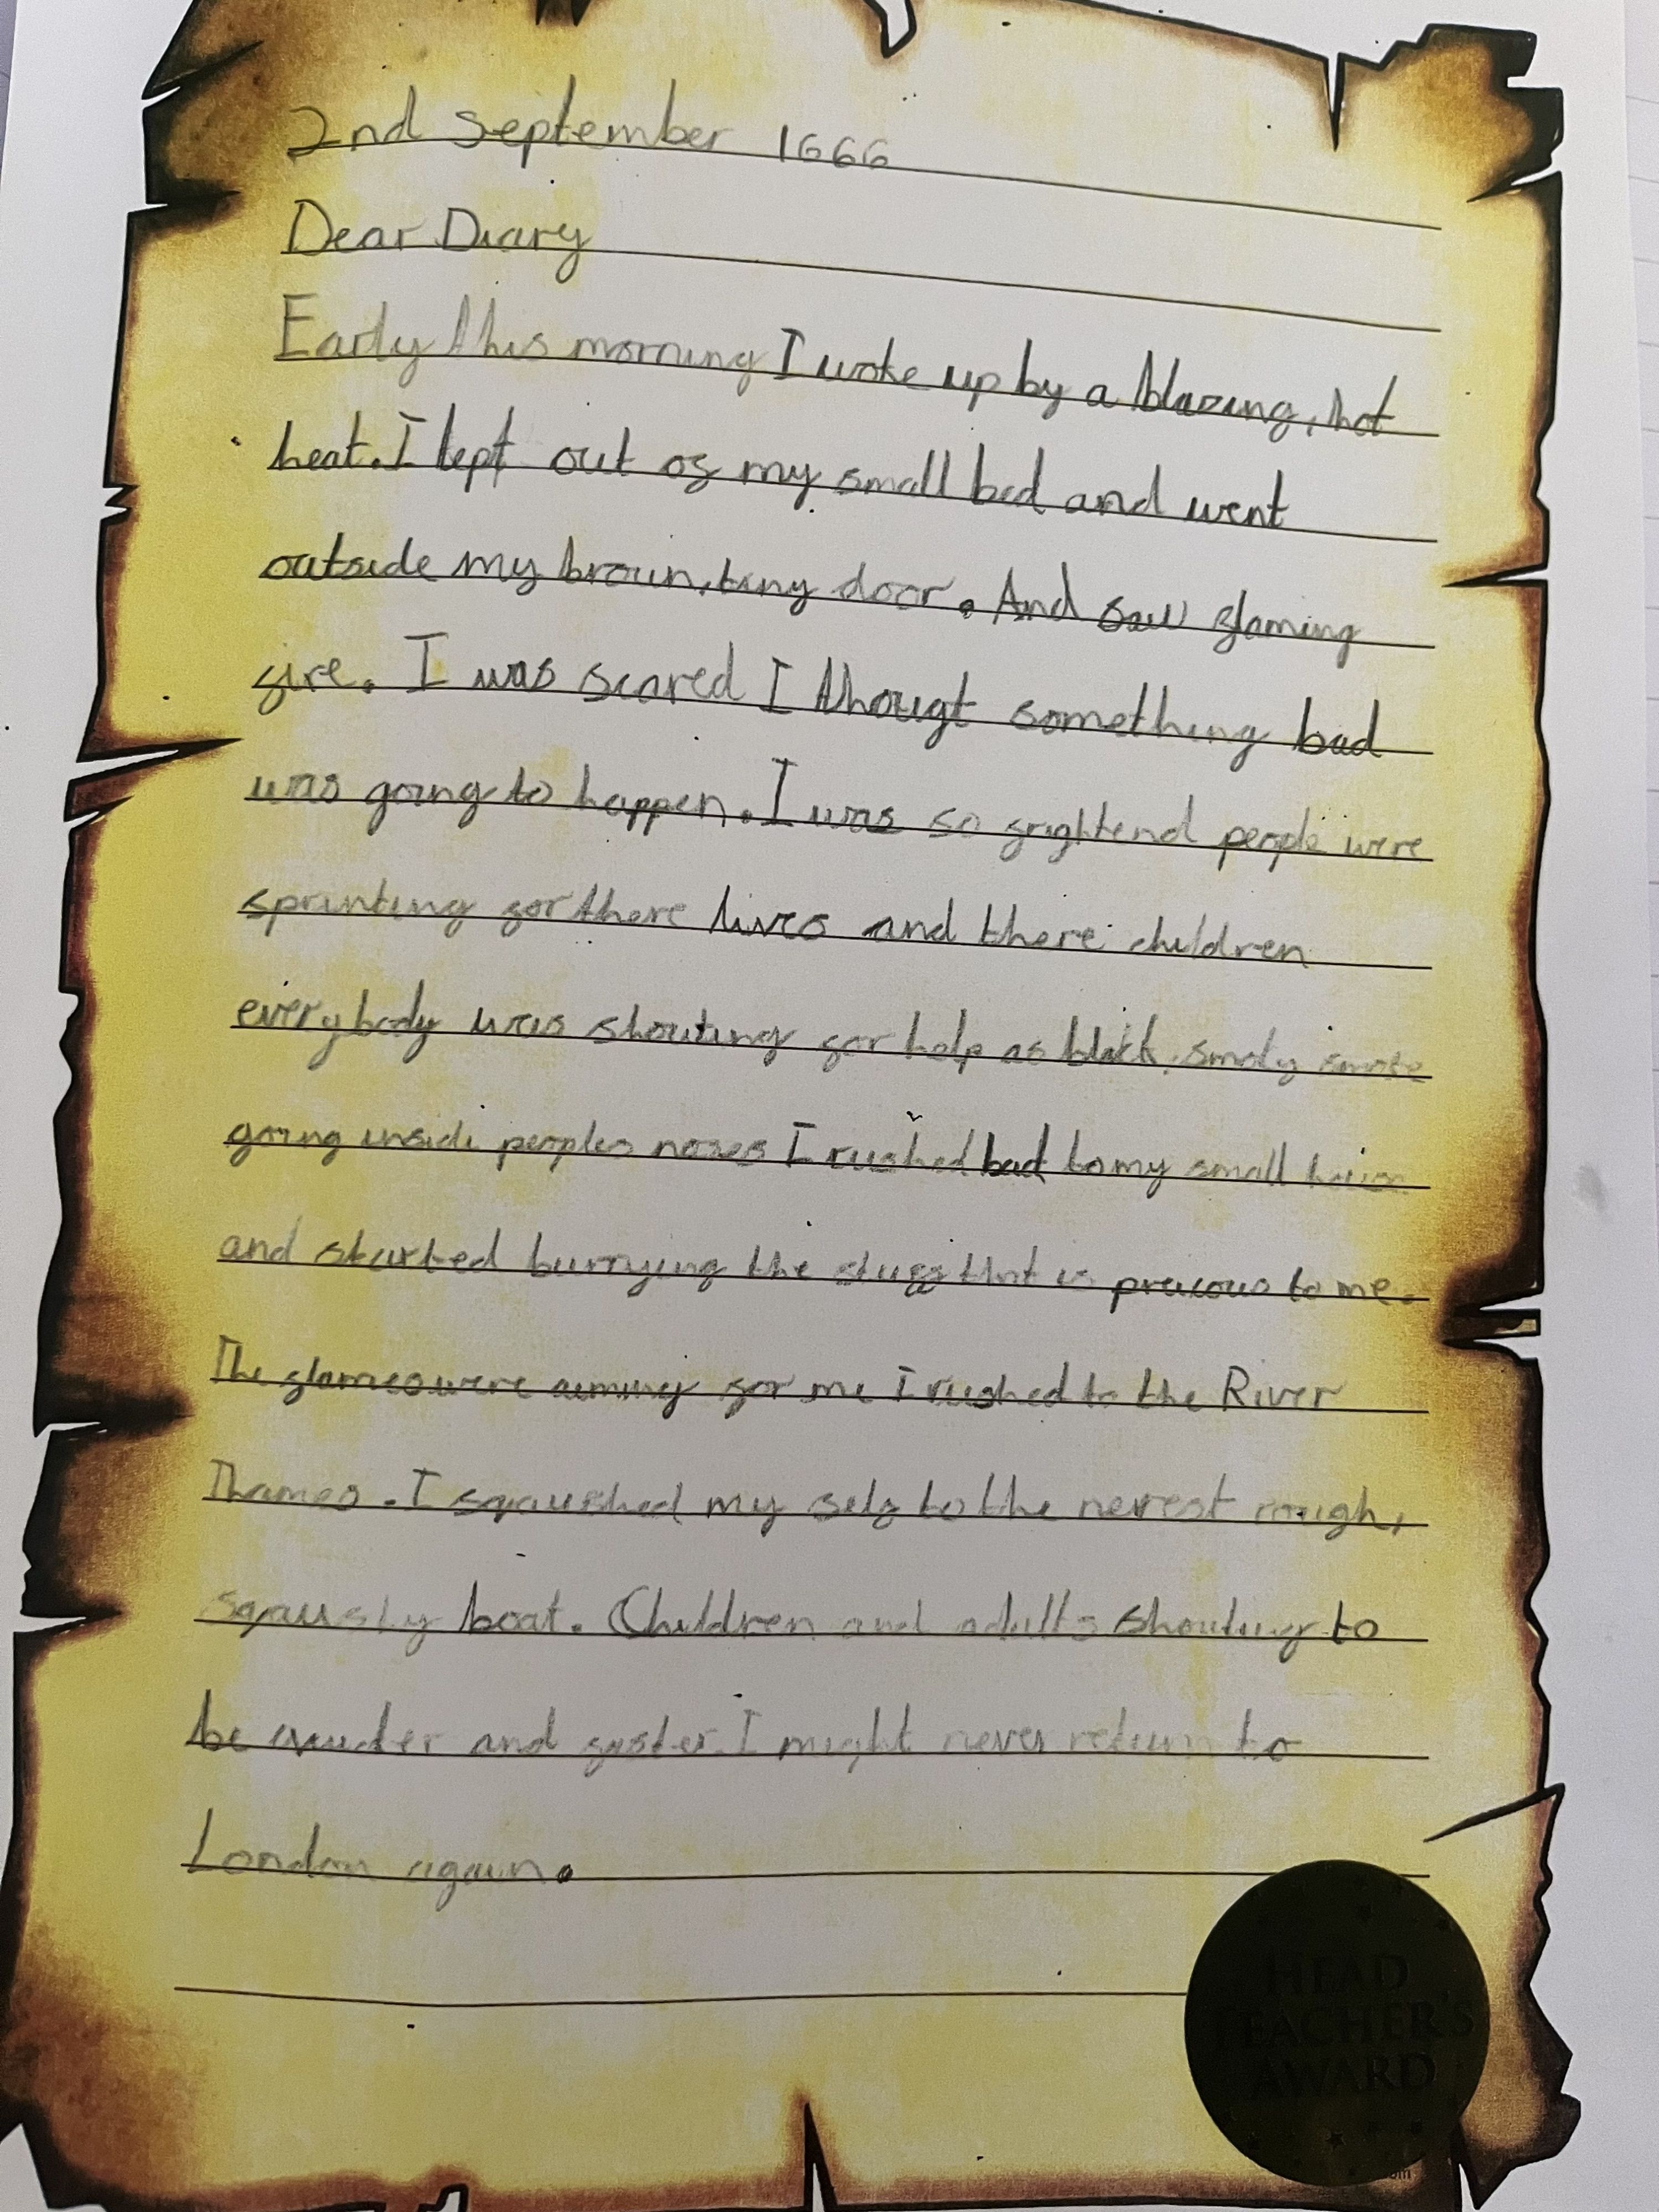 2nd September 1666
Dear Diary
Early this morning I woke up by a blazing, hot
heat. I lept out of my small bed and went
outside my brown, tiny door. And saw flaming
fire. I was scared I thougt something bad
was going to happen. I was so frightend people were
sprinting for there lives and there children
everybody was shouting for help as black, smoky smoke
going inside peoples noses I rushed bad to my small house
and started burrying the stuff that is precious to me.
The flames were aiming for me I rushed to the River
Thames. I sqaushed my self to the nerest rough,
boat. Children and adults shouting to
be and faster. I might never return to
London again.
HEAD
TEACHER'S
AWARD